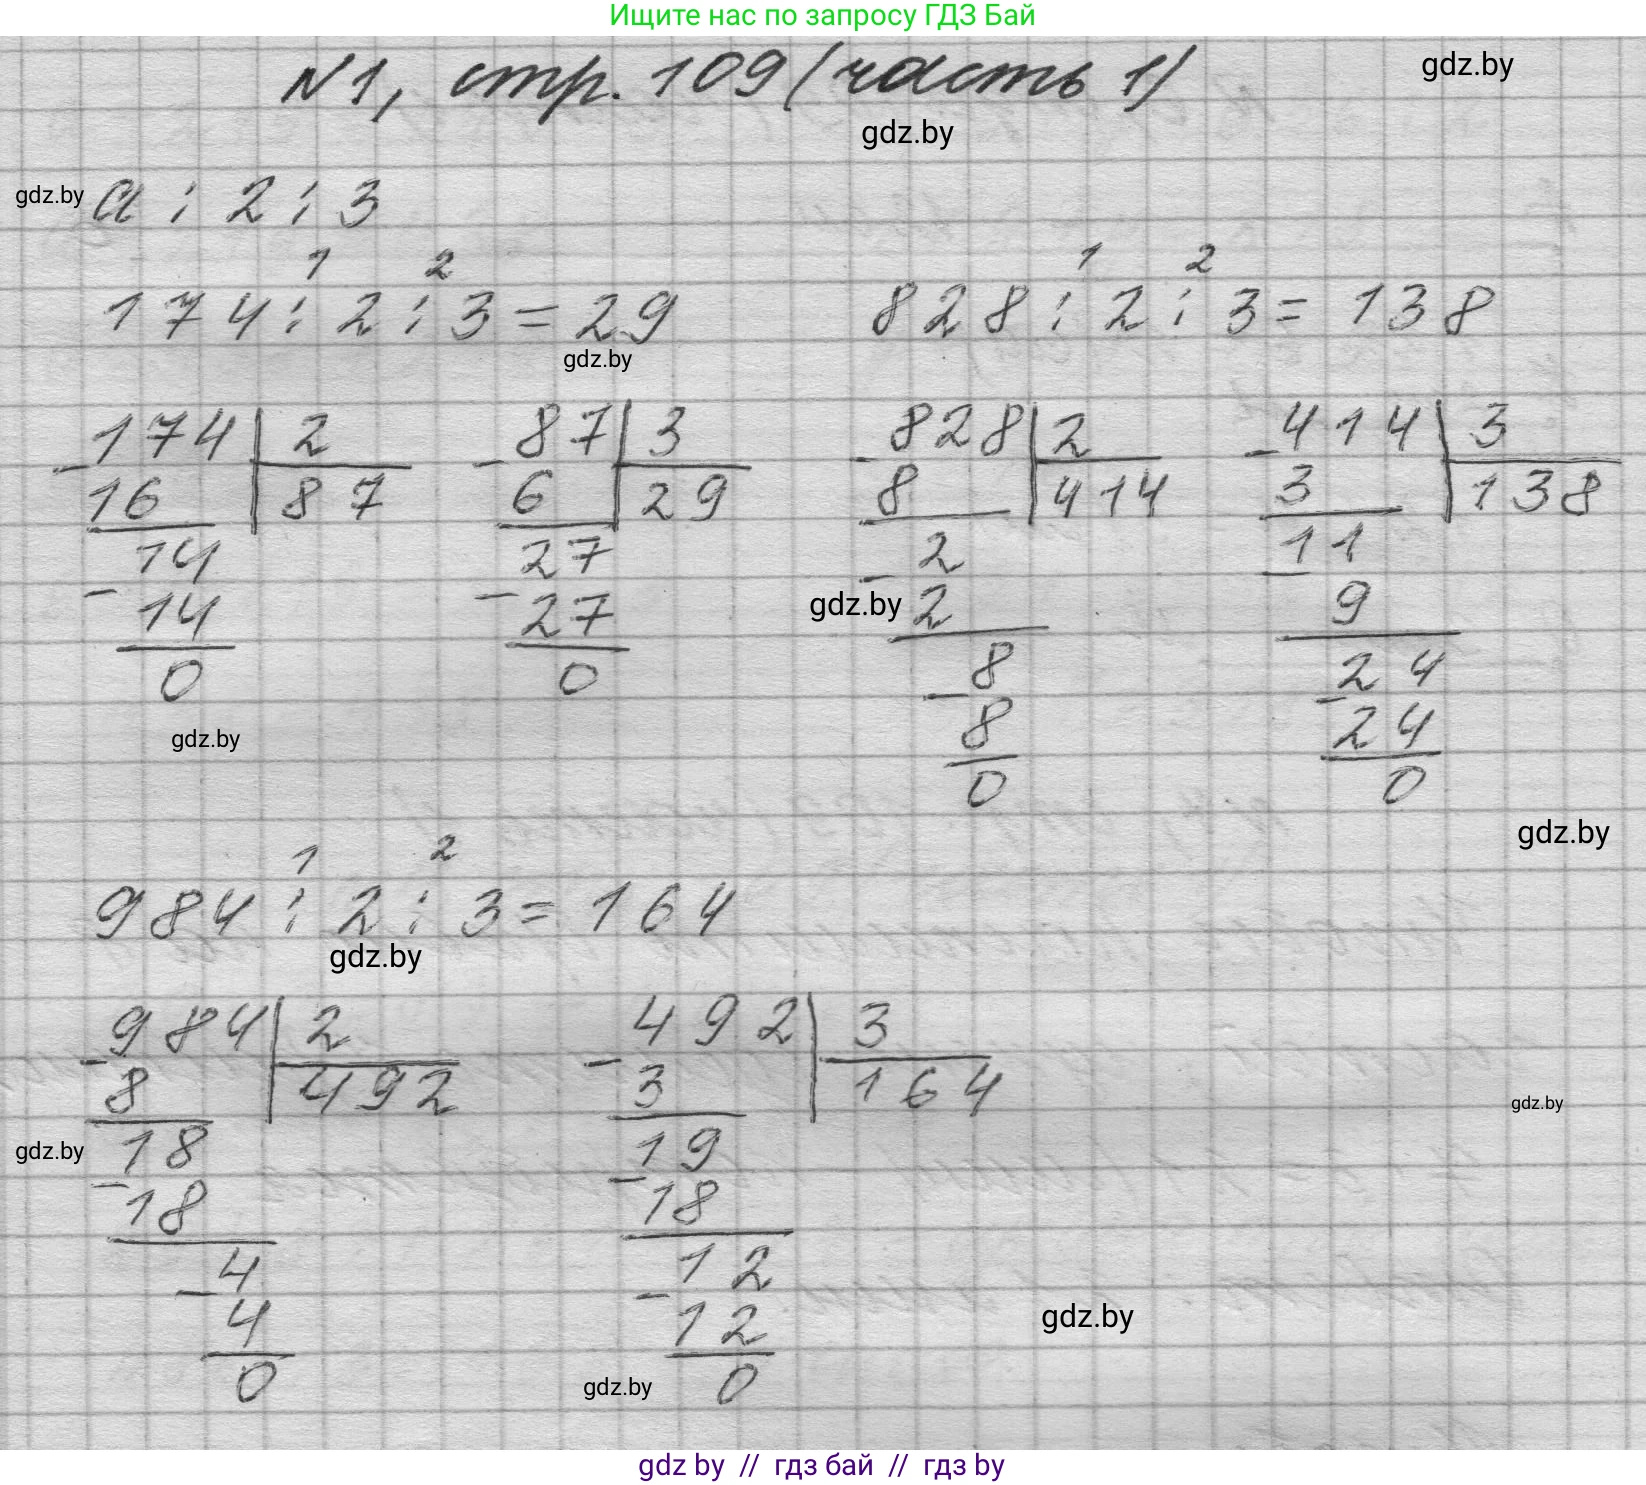 Ищите нас по запросу ГДЗ Бай
N1, стр. 109 (часть 1)
gdz.by
gdz.by
gdz.by
a : 2 : 3
1 2
174 : 2 : 3 = 29
1 2
828 : 2 : 3 = 138
gdz.by
174 | 2
- 16 | 87
14
- 14
0
87 | 3
- 6 | 29
27
- 27
0
828 | 2
- 8 | 414
2
- 2
8
- 8
0
414 | 3
- 3 | 138
11
- 9
24
- 24
0
gdz.by
gdz.by
gdz.by
1 2
984 : 2 : 3 = 164
gdz.by
984 | 2
- 8 | 492
18
- 18
4
- 4
0
492 | 3
- 3 | 164
19
- 18
12
- 12
0
gdz.by
gdz.by
gdz.by
gdz.by
gdz by // гдз бай // гдз by